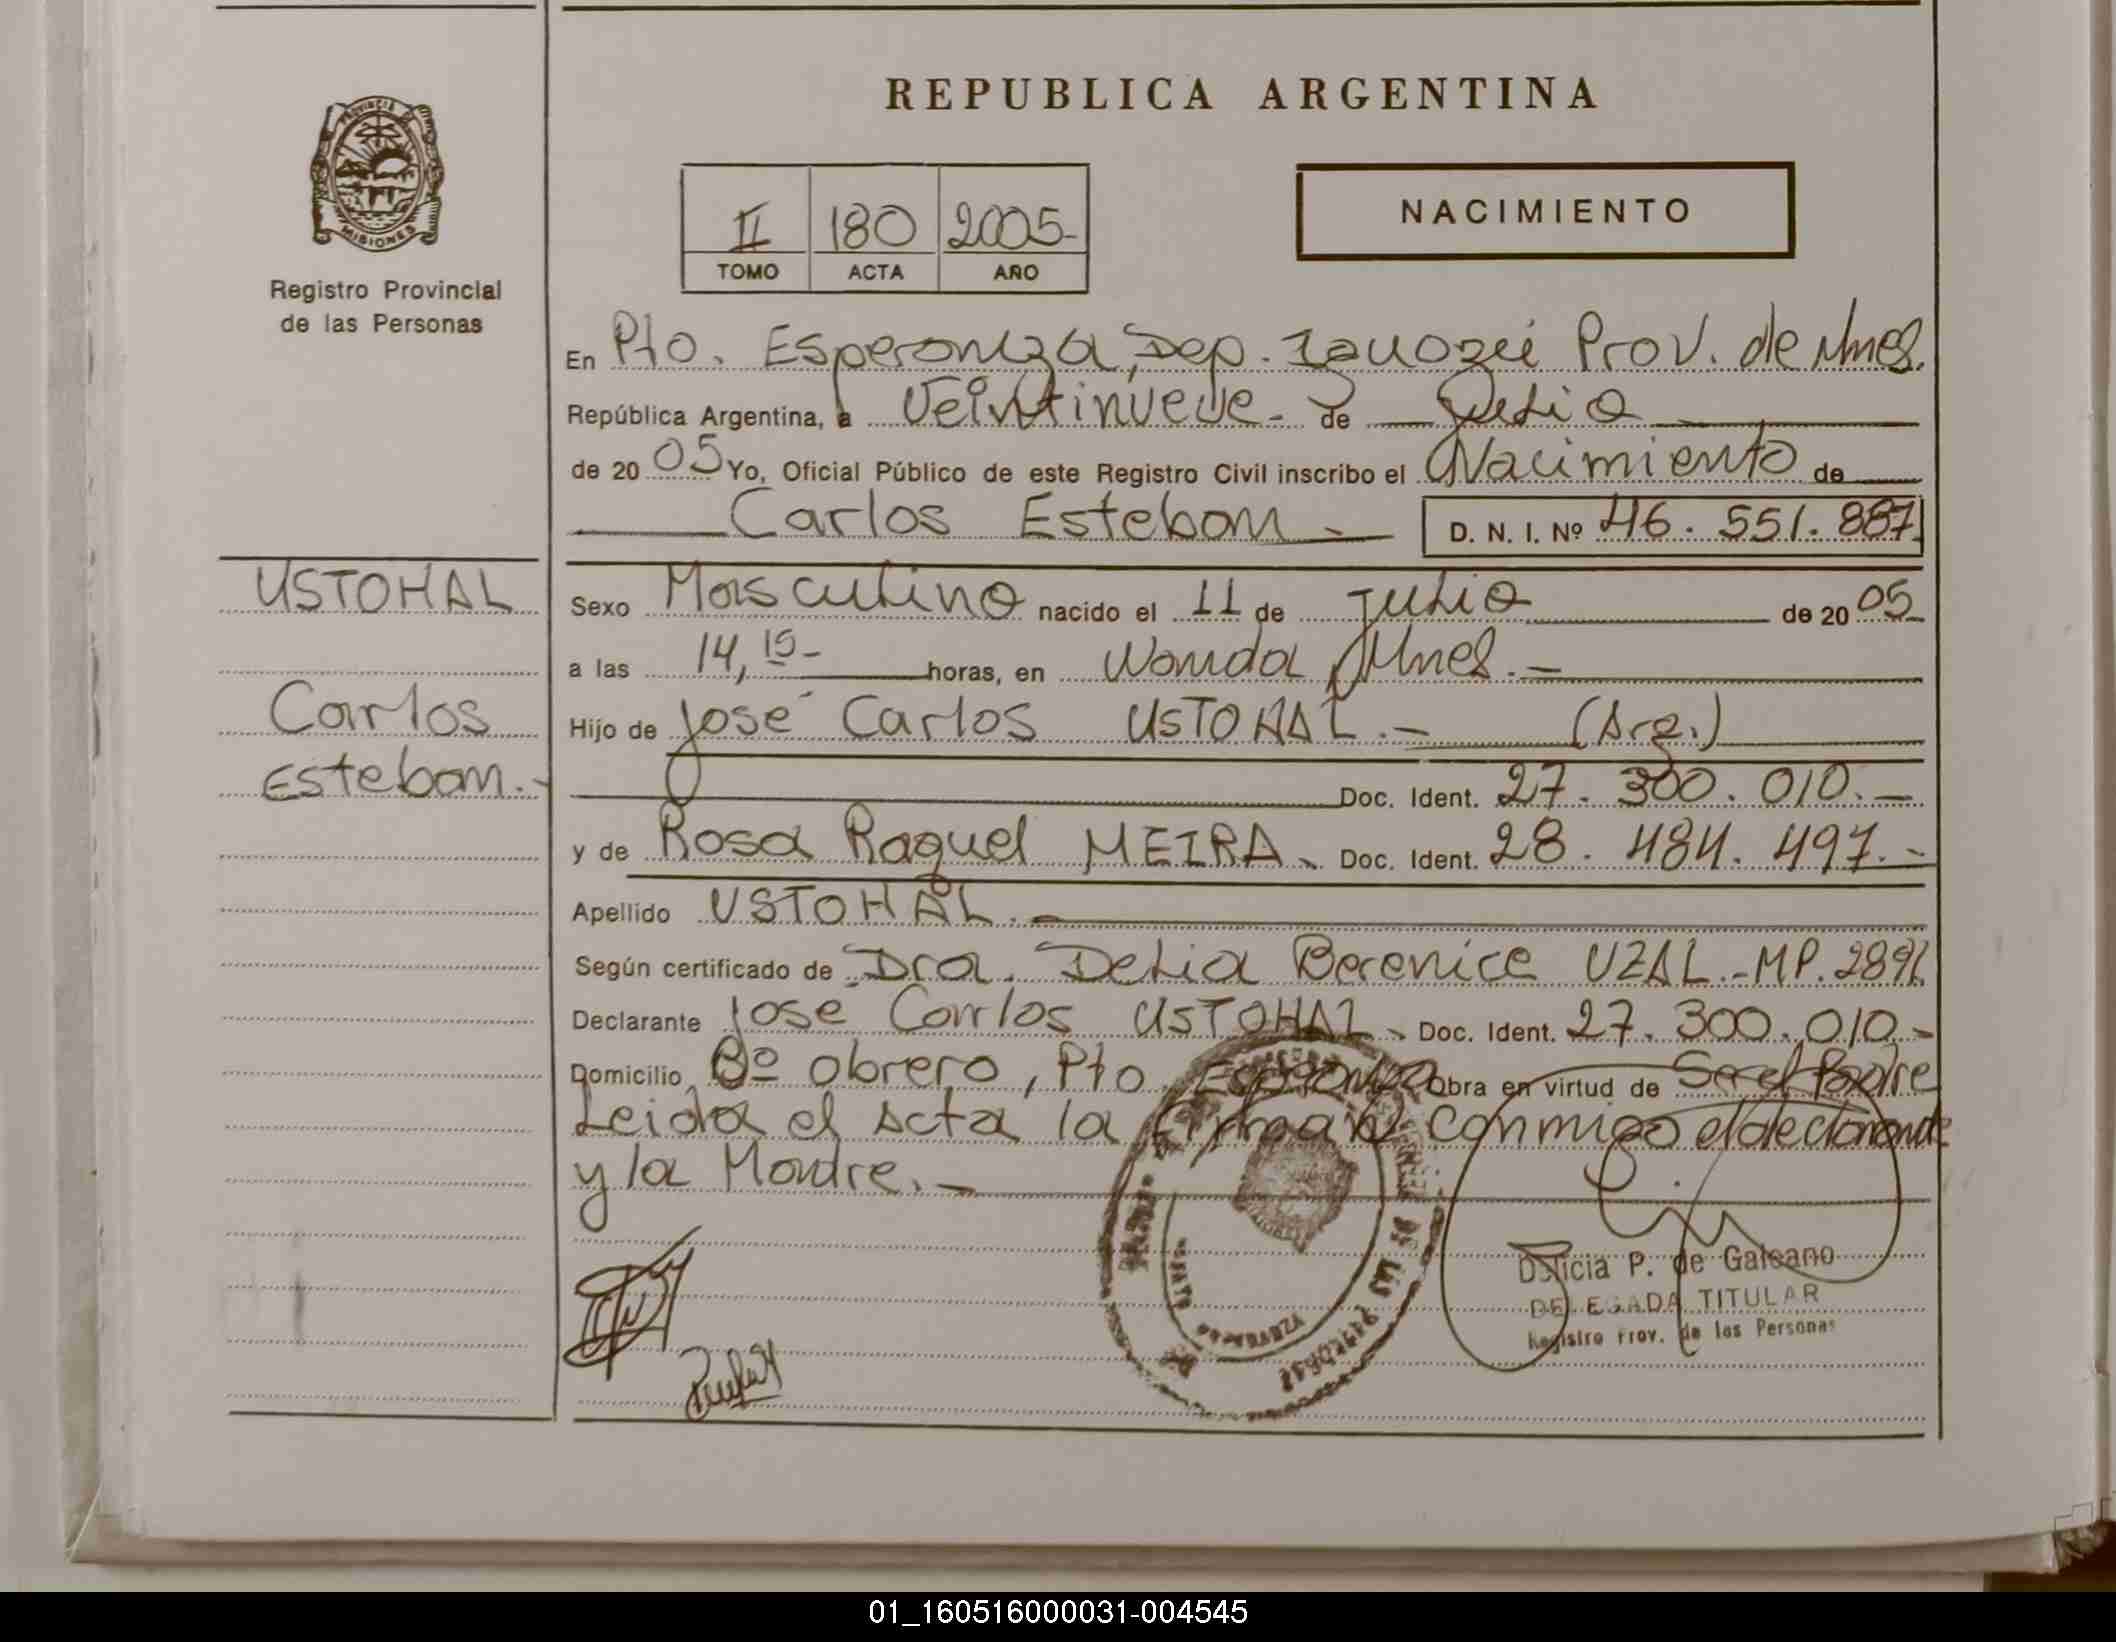 REPUBLICA ARGENTINA
PROVINCIA DE
MISIONES
Registro Provincial
de las Personas
II 180 2005-
TOMO ACTA AÑO
NACIMIENTO
En Pto. Esperanza, Dep. Iguazú Prov. de Mnes.
República Argentina, a Veintinueve- de Julio
de 20 05 Yo, Oficial Público de este Registro Civil inscribo el Nacimiento de
Carlos Esteban.- D. N. I. Nº 46.551.887
USTOHAL
Carlos
Esteban.-
Sexo Masculino nacido el 11 de Julio de 20 05-
a las 14,15- horas, en Wanda, Mnes.-
Hijo de José Carlos USTOHAL.- (Arg.)
Doc. Ident. 27.300.010.-
y de Rosa Raquel MEIRA- Doc. Ident. 28.484.497.-
Apellido USTOHAL.-
Según certificado de Dra. Delia Berenice UZAL.-MP.
Declarante Jose Carlos USTOHAL- Doc. Ident. 27.300.010.-
Domicilio Bº obrero, Pto Esperanza Obra en virtud de Ser el Padre
Leida el Acta la firman conmigo el declarante
y la Madre.-
DE LAS PERSONAS
Delicia P. de Galeano
DELEGADA TITULAR
Registro Prov. de las Personas
01_160516000031-004545